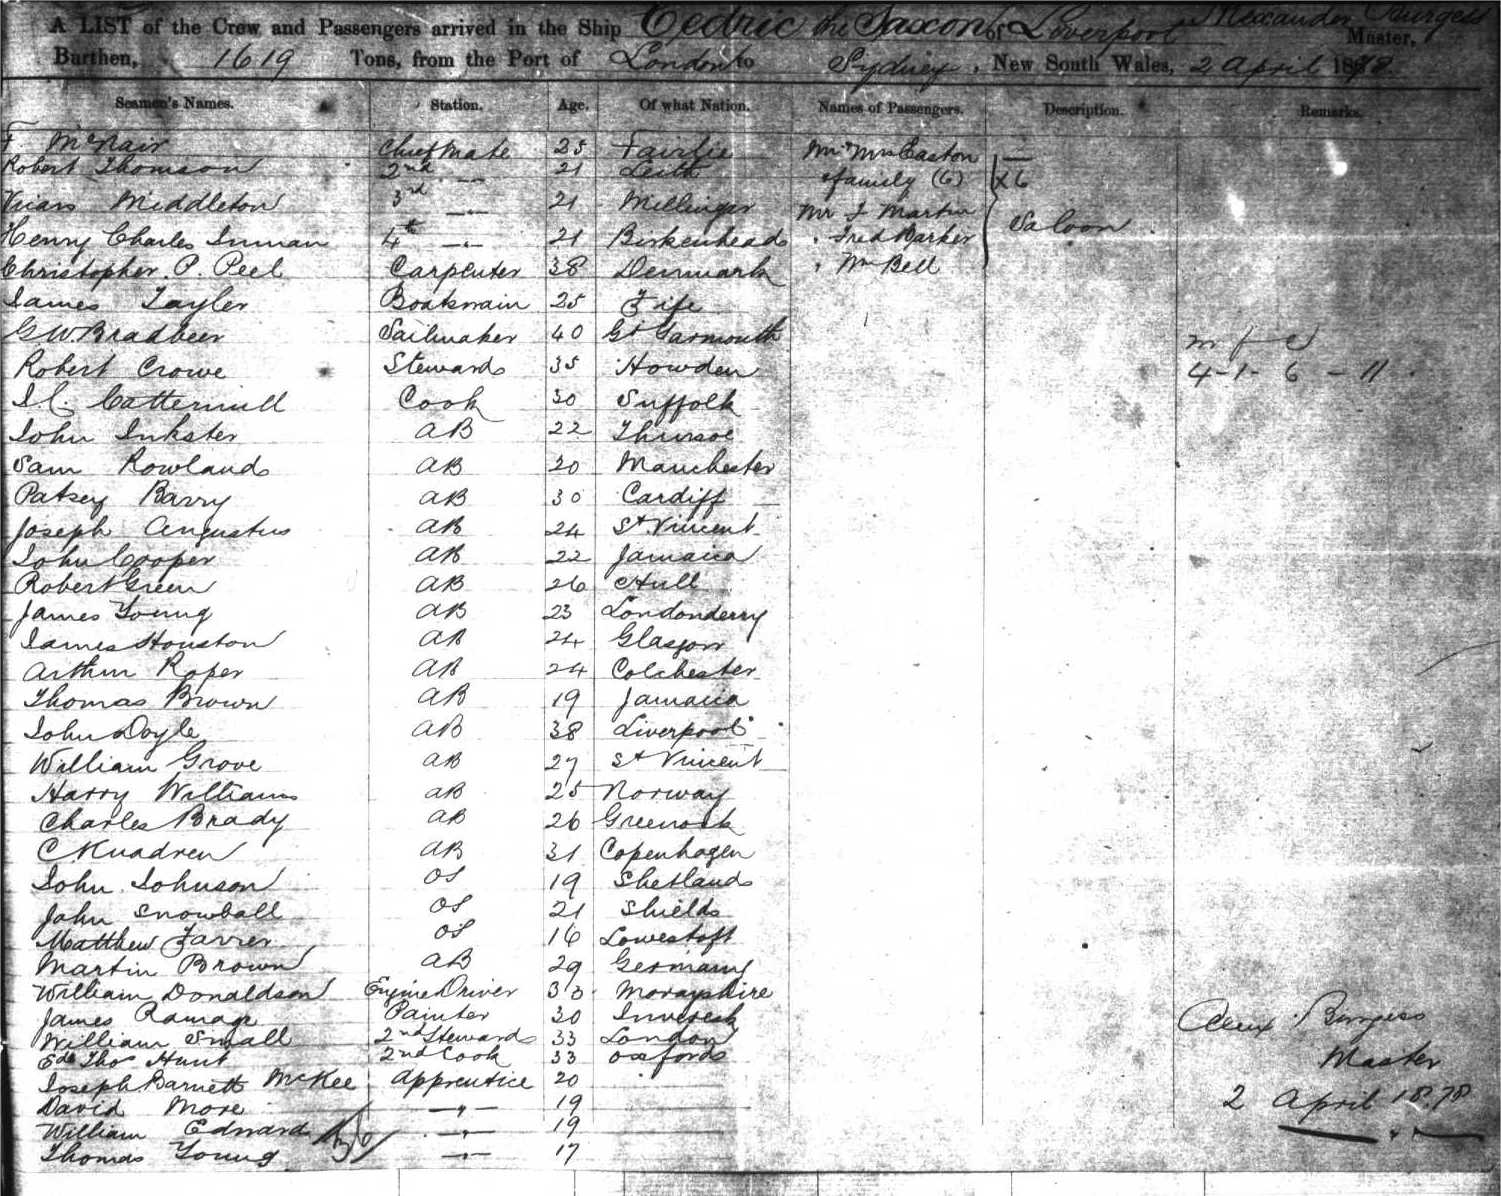 A LIST of the Crew and Passengers arrived in the Ship Cedric the Saxon of Liverpool Alexander Burgess Master,
Burthen, 1619 Tons, from the Port of London to Sydney, New South Wales, 2 April 1878.
Seamen's Names. Station. Age. Of what Nation. Names of Passengers. Description. Remarks.
F McNair Chief Mate 25 Fairlie Mr & Mrs Easton
Robert Thomson 2nd " 21 Leith & family (6) x6
Middleton 3rd " 21 Mr J Martin
Henry Charles Inman 4th " 21 Birkenhead " Fred Barker Saloon
Christopher P. Peel Carpenter 38 Denmark " Wm Bell
James Tayler Boatswain 25 Fife
G W. Bradbeer Sailmaker 40 Gt Yarmouth m f c
Robert Crowe Steward 35 Howden 4-1-6-11.
Cattermull Cook 30 Suffolk
John Inkster AB 22 Thursoe
Sam Rowland AB 20 Manchester
Patsey Barry AB 30 Cardiff
Joseph Angustus AB 24 St Vincent
John Cooper AB 22 Jamaica
Robert Green AB 26 Hull
James Young AB 23 Londonderry
James Houston AB 24 Glasgow
Arthur Roper AB 24 Colchester
Thomas Brown AB 19 Jamaica
John Doyle AB 38 Liverpool
William Grove AB 27 St Vincent
Harry Williams AB 25 Norway
Charles Brady AB 26 Greenock
C AB 31 Copenhagen
John Johnson OS 19 Shetland
John Snowball OS 21 Shields
Matthew Farrer OS 16 Lowestoft
Martin Brown AB 29 Germany
William Donaldson Engine Driver 33 Morayshire
James Ramage Painter 30 Inveresk Alex Burgess
William Small 2nd Steward 33 London
Edd Thos Hunt 2nd Cook 33 Oxford Master
Joseph Barnett McKee Apprentice 20
David More " 19 2 April 1878
William Edward " 19
Thomas Young " 17